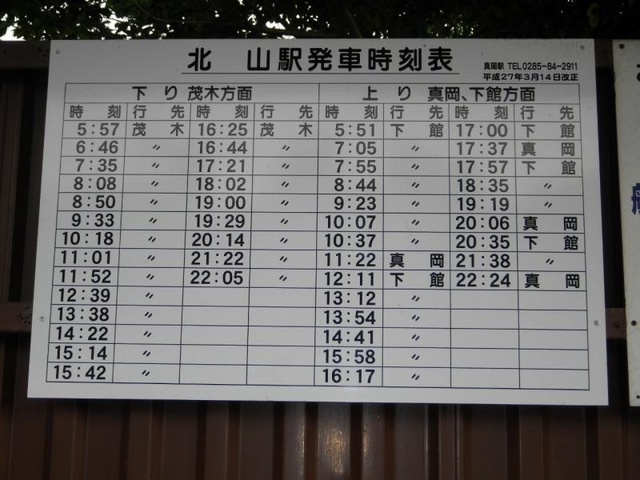 北 山駅発車時刻表
真岡駅 TEL0285-84-2911
平成27年3月14日改正
下り 茂木方面 上り 真岡、下館方面
時刻 行先 時刻 行先 時刻 行先 時刻 行先
5:57 茂木 16:25 茂木 5:51 下館 17:00 下館
6:46 〃 16:44 〃 7:05 〃 17:37 真岡
7:35 〃 17:21 〃 7:55 〃 17:57 下館
8:08 〃 18:02 〃 8:44 〃 18:35 〃
8:50 〃 19:00 〃 9:23 〃 19:19 〃
9:33 〃 19:29 〃 10:07 〃 20:06 真岡
10:18 〃 20:14 〃 10:37 〃 20:35 下館
11:01 〃 21:22 〃 11:22 真岡 21:38 〃
11:52 〃 22:05 〃 12:11 下館 22:24 真岡
12:39 〃 13:12 〃
13:38 〃 13:54 〃
14:22 〃 14:41 〃
15:14 〃 15:58 〃
15:42 〃 16:17 〃